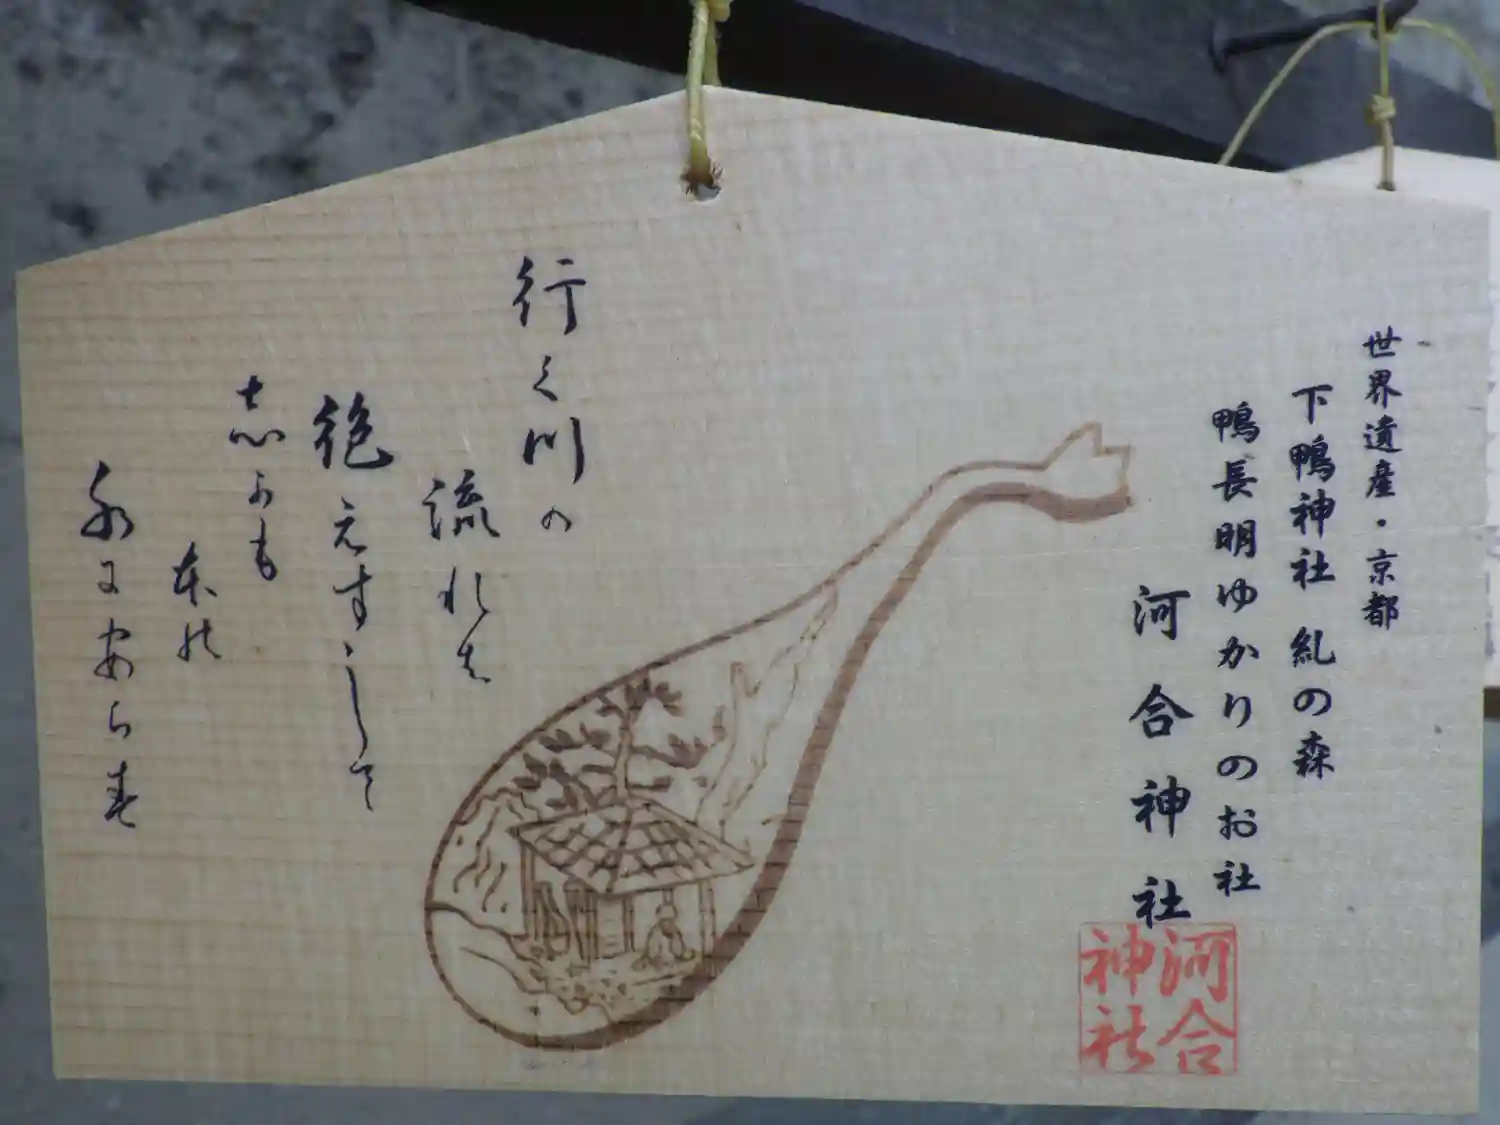 世界遺産・京都
下鴨神社 糺の森
鴨長明ゆかりのお社
河合神社
河合
神社
行く川の
流れは
絶えすして
志かも
本の
水にあらす